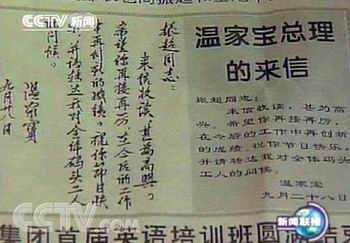 CCTV 新闻
振超同志：
来信收读，甚为高兴。
希望你再接再厉，在今后的工作
中再创新的成绩。祝你节日快
乐，并请转达我对全体码头工人
的问候。
温家宝
九月廿八日
温家宝总理
的来信
振超同志：
来信收读，甚为高
兴。希望你再接再厉，
在今后的工作中再创新
的成绩。祝你节日快乐，
并请转达我对全体码头
工人的问候。
温家宝
九月二十八日
CCTV.com
新闻联播
集团首届英语培训班圆满结束